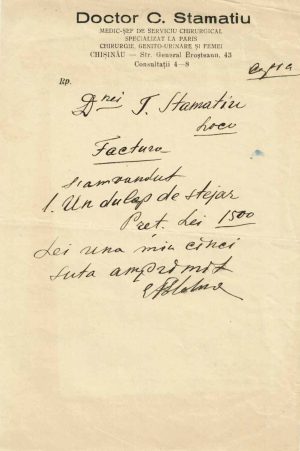 Doctor C. Stamatiu
MEDIC-ȘEF DE SERVICIU CHIRURGICAL
SPECIALIZAT LA PARIS
CHIRURGIE, GENITO-URINARE ȘI FEMEI
CHIȘINĂU — Str. General Broșteanu, 43
Consultații 4—8
Copia
Rp.
Dnei T. Stamatiu
Loco
Factura
s'am vandut
1. Un dulap de stejar
Pret. Lei 1500
Lei una mia cinci
suta am primit